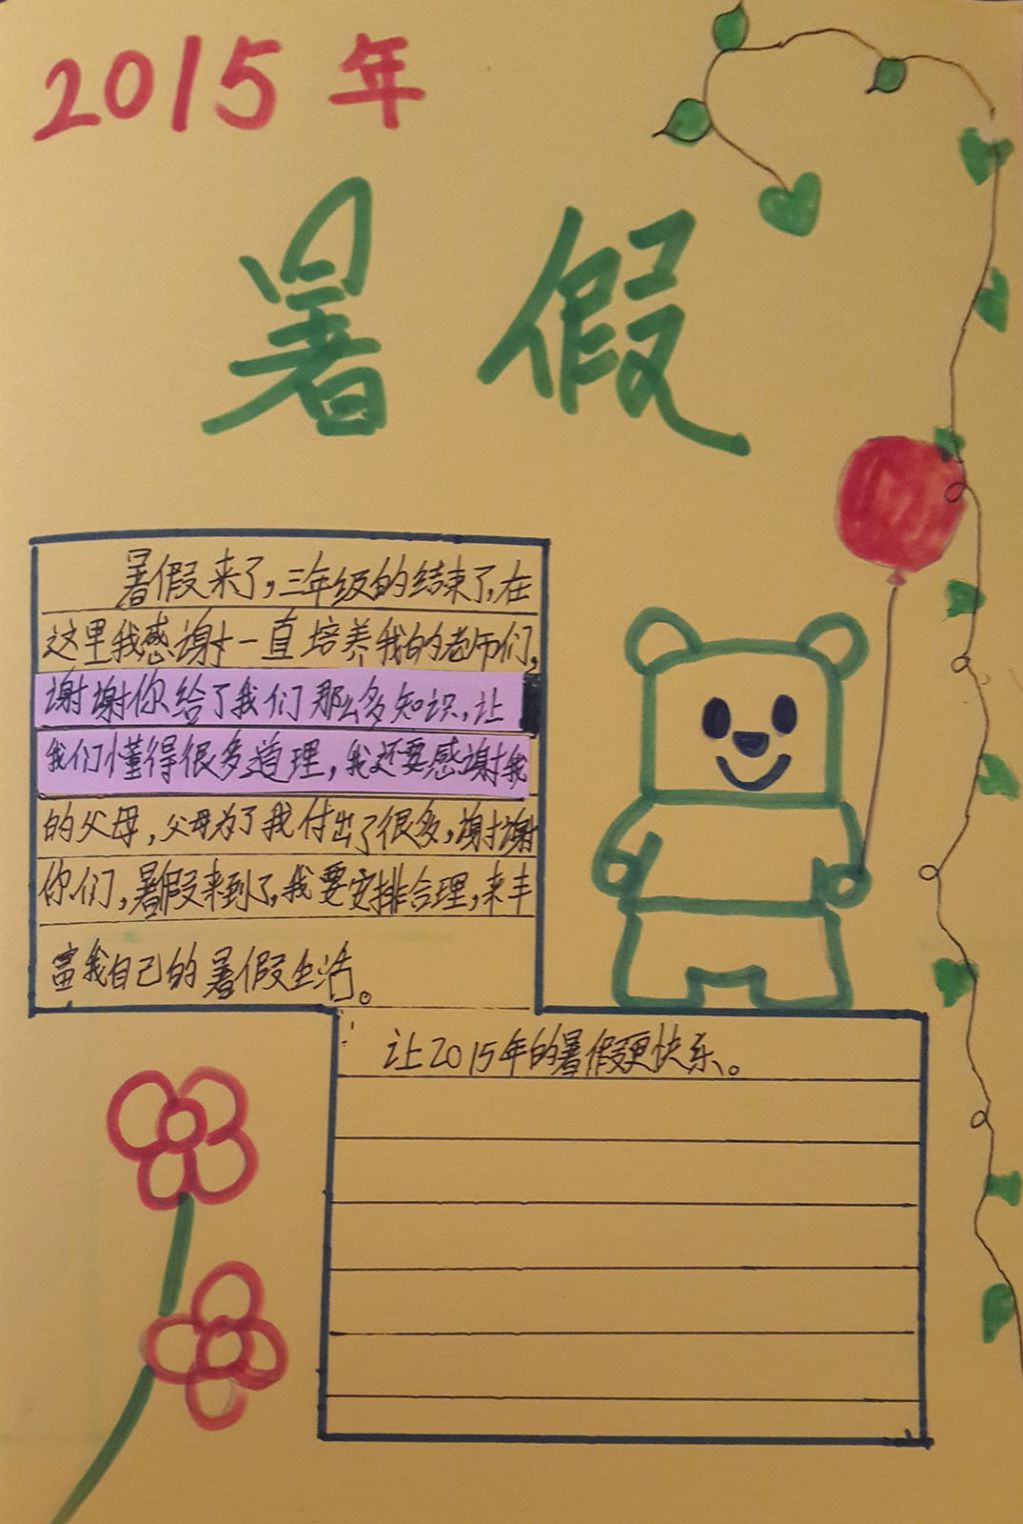 2015年
暑假
暑假来了，三年级的结束了，在
这里我感谢一直培养我的老师们，
谢谢你给了我们那么多知识，让
我们懂得很多道理，我还要感谢我
的父母，父母为了我付出了很多，谢谢
你们，暑假来到了，我要安排合理，来丰
富我自己的暑假生活。
让2015年的暑假更快乐。